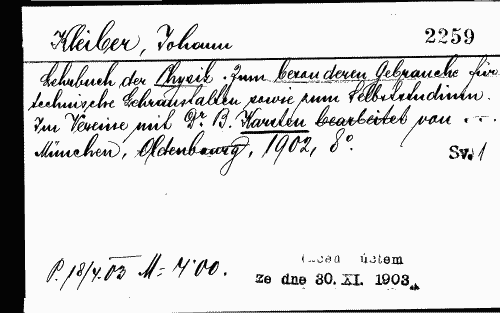 Kleiber, Johann
2259
Lehrbuch der Physik. Zum besonderen Gebrauche für
technische Lehranstalten sowie zum Selbststudium.
Im Vereine mit Dr B. Karsten bearbeitet von ...
München, Oldenbourg, 1902, 8°.
Sv. 1
P. 18/4.03 M = 4.00.
ústem
ze dne 30. XI. 1903.